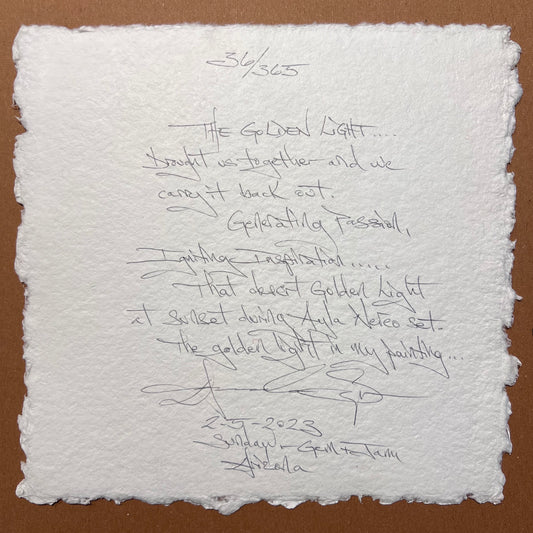 36/365
THE GOLDEN LIGHT....
Brought us together and we
carry it back out.
Generating Passion,
Igniting Inspiration.....
That desert Golden Light
at sunset during Ayla Nereo set.
The golden light in my painting...
2-5-2023
Sunday - Gem & Jam
Arizona